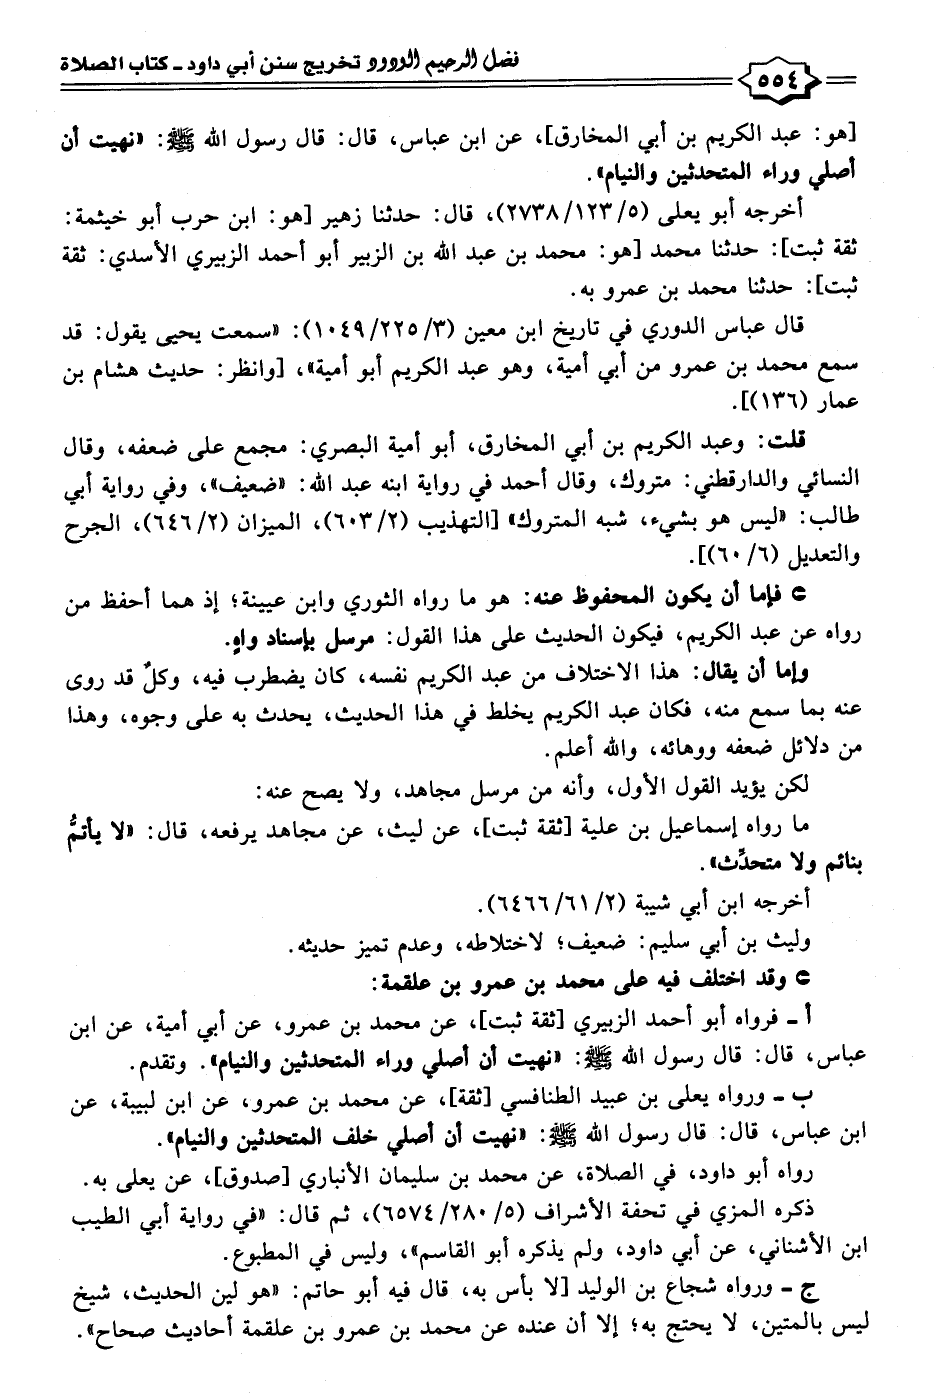 ٥٥٤
فضل الرحيم الودود تخريج سنن أبي داود ـ كتاب الصلاة
[هو: عبد الكريم بن أبي المخارق]، عن ابن عباس، قال: قال رسول الله ﷺ: «نهيت أن
أصلي وراء المتحدثين والنيام».
أخرجه أبو يعلى (٢٧٣٨/١٢٣/٥)، قال: حدثنا زهير [هو: ابن حرب أبو خيثمة:
ثقة ثبت]: حدثنا محمد [هو: محمد بن عبد الله بن الزبير أبو أحمد الزبيري الأسدي: ثقة
ثبت]: حدثنا محمد بن عمرو به.
قال عباس الدوري في تاريخ ابن معين (١٠٤٩/٢٢٥/٣): «سمعت يحيى يقول: قد
سمع محمد بن عمرو من أبي أمية، وهو عبد الكريم أبو أمية»، [وانظر: حديث هشام بن
عمار (١٣٦)].
قلت: وعبد الكريم بن أبي المخارق، أبو أمية البصري: مجمع على ضعفه، وقال
النسائي والدارقطني: متروك، وقال أحمد في رواية ابنه عبد الله: «ضعيف»، وفي رواية أبي
طالب: «ليس هو بشيء، شبه المتروك» [التهذيب (٦٠٣/٢)، الميزان (٦٤٦/٢)، الجرح
والتعديل (٦٠/٦)].
فإما أن يكون المحفوظ عنه: هو ما رواه الثوري وابن عيينة؛ إذ هما أحفظ من
رواه عن عبد الكريم، فيكون الحديث على هذا القول: مرسل بإسناد واهٍ.
وإما أن يقال: هذا الاختلاف من عبد الكريم نفسه، كان يضطرب فيه، وكلٌ قد روى
عنه بما سمع منه، فكان عبد الكريم يخلط في هذا الحديث، يحدث به على وجوه، وهذا
من دلائل ضعفه ووهائه، والله أعلم.
لكن يؤيد القول الأول، وأنه من مرسل مجاهد، ولا يصح عنه:
ما رواه إسماعيل بن علية [ثقة ثبت]، عن ليث، عن مجاهد يرفعه، قال: «لا يأتمُّ
بنائم ولا متحدِّث».
أخرجه ابن أبي شيبة (٦٤٦٦/٦١/٢).
وليث بن أبي سليم: ضعيف؛ لاختلاطه، وعدم تميز حديثه.
وقد اختلف فيه على محمد بن عمرو بن علقمة:
أ ـ فرواه أبو أحمد الزبيري [ثقة ثبت]، عن محمد بن عمرو، عن أبي أمية، عن ابن
عباس، قال: قال رسول الله ﷺ: «نهيت أن أصلي وراء المتحدثين والنيام». وتقدم.
ب ـ ورواه يعلى بن عبيد الطنافسي [ثقة]، عن محمد بن عمرو، عن ابن لبيبة، عن
ابن عباس، قال: قال رسول الله ﷺ: «نهيت أن أصلي خلف المتحدثين والنيام».
رواه أبو داود، في الصلاة، عن محمد بن سليمان الأنباري [صدوق]، عن يعلى به.
ذكره المزي في تحفة الأشراف (٦٥٧٤/٢٨٠/٥)، ثم قال: «في رواية أبي الطيب
ابن الأشناني، عن أبي داود، ولم يذكره أبو القاسم»، وليس في المطبوع.
ج ـ ورواه شجاع بن الوليد [لا بأس به، قال فيه أبو حاتم: «هو لين الحديث، شيخ
ليس بالمتين، لا يحتج به؛ إلا أن عنده عن محمد بن عمرو بن علقمة أحاديث صحاح».